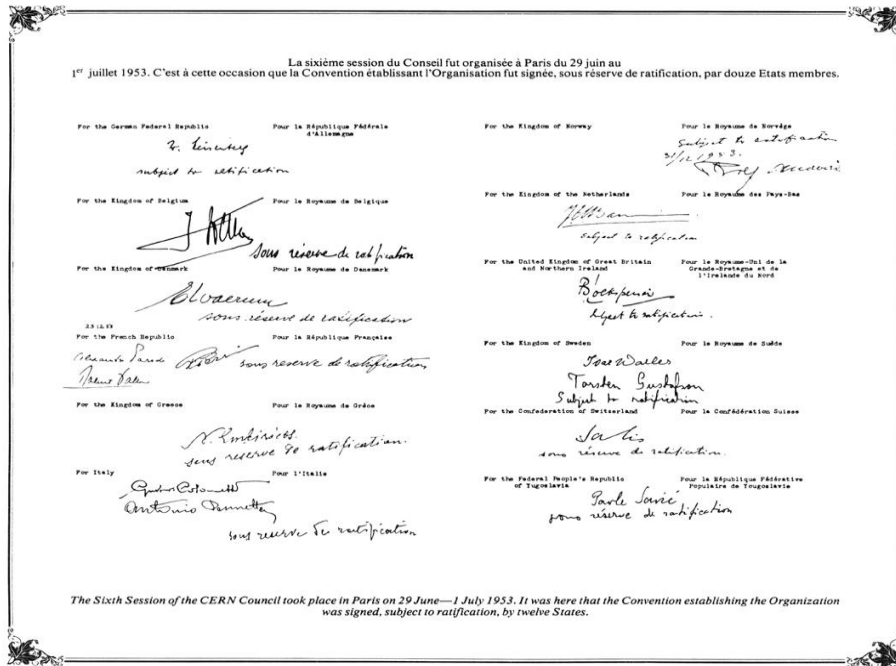 La sixième session du Conseil fut organisée à Paris du 29 juin au
1er juillet 1953. C'est à cette occasion que la Convention établissant l'Organisation fut signée, sous réserve de ratification, par douze Etats membres.
For the German Federal Republic
Pour la République Fédérale
d'Allemagne
subject to ratification
For the Kingdom of Belgium
Pour le Royaume de Belgique
sous réserve de ratification
For the Kingdom of Denmark
Pour le Royaume de Danemark
sous réserve de ratification
23.12.53
For the French Republic
Pour la République Française
sous reserve de ratification
For the Kingdom of Greece
Pour le Royaume de Grèce
sous reserve de ratification.
For Italy
Pour l'Italie
sous reserve de ratification
For the Kingdom of Norway
Pour le Royaume de Norvège
Subject to ratification
31/12 1953.
For the Kingdom of the Netherlands
Pour le Royaume des Pays-Bas
subject to ratification
For the United Kingdom of Great Britain
and Northern Ireland
Pour le Royaume-Uni de la
Grande-Bretagne et de
l'Irelande du Nord
subject to ratification.
For the Kingdom of Sweden
Pour le Royaume de Suède
Ivar Waller
Torsten Gustafson
Subject to ratification
For the Confederation of Switzerland
Pour la Confédération Suisse
Salis
sous réserve de ratification.
For the Federal People's Republic
of Yugoslavia
Pour la République Fédérative
Populaire de Yougoslavie
Pavle Savić
sous réserve de ratification
The Sixth Session of the CERN Council took place in Paris on 29 June—1 July 1953. It was here that the Convention establishing the Organization
was signed, subject to ratification, by twelve States.